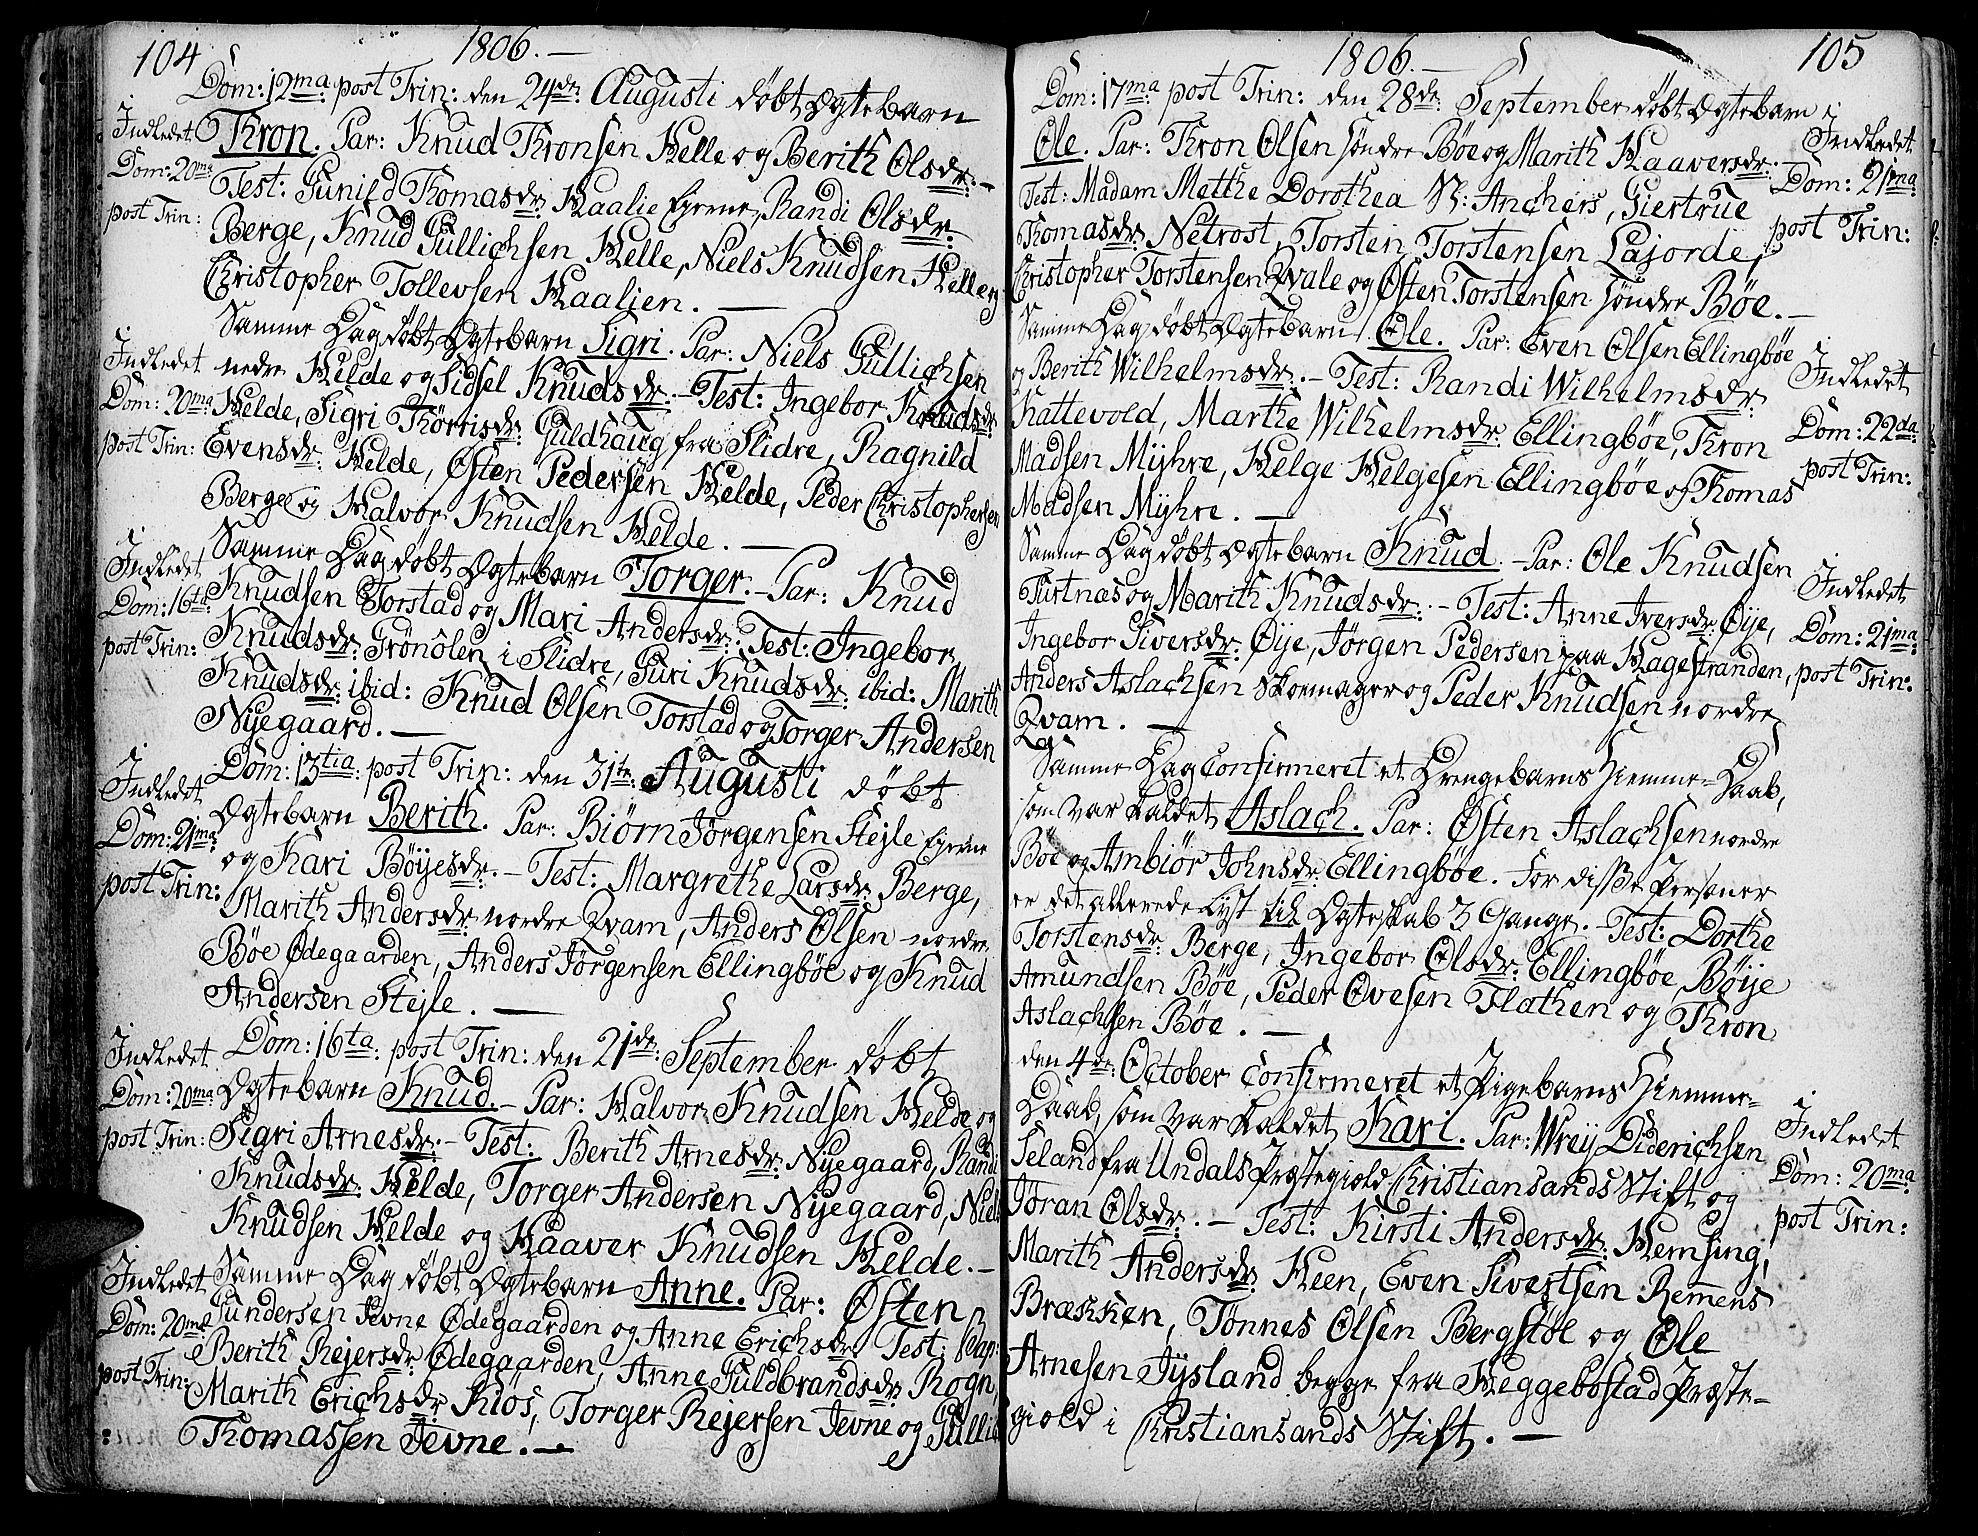 104
1806. —
Dom: 12ma post Trin: den 24de Augusti döbt Ægtebarn
Indledet
Dom: 20ma
post Trin:
Thron. Par: Knud Thronsen Helle og Berith Olsdr: —
Test: Gunild Thomasdr: Haalie Eierne, Randi Olsdr:
Berge, Knud Gullichsen Helle, Niels Knudsen Helle og
Christopher Tollevsen Haalien. —
Samme Dag döbt Ægtebarn Sigri. Par: Niels Gullichsen
Indledet
Dom: 20ma
post Trin:
nedre Helde og Sidsel Knudsdr: — Test: Ingebor Knudsdr:
Helde, Sigri Thorrisdr: Guldhaug fra Slidre, Ragnild
Evensdr: Helde, Østen Pedersen Helde, Peder Christophersen
Berge og Halvor Knudsen Helde. —
Samme Dag döbt Ægtebarn Torger. — Par: Knud
Indledet
Dom: 16ta
post Trin:
Knudsen Torstad og Mari Andersdr: Test: Ingebor
Knudsdr: Grönolen i Slidre, Guri Knudsdr: ibid: Marith
Knudsdr: ibid: Knud Olsen Torstad og Torger Andersen
Nyegaard. —
Dom: 13tia: post Trin: den 31te Augusti döbt
Indledet
Dom: 21ma
post Trin:
Ægtebarn Berith. Par: Biörn Jörgensen Stejle Eierne
og Kari Böyesdr: — Test: Margrethe Larsdr: Berge,
Marith Andersdr: nordre Qvam, Anders Olsen nordre
Böe Ødegaarden, Anders Jörgensen Ellingböe og Knud
Andersen Stejle. —
Dom: 16ta: post Trin: den 21de September döbt
Indledet
Dom: 20ma
post Trin:
Ægtebarn Knud. — Par: Halvor Knudsen Helde og
Sigri Arnesdr: — Test: Berith Arnesdr: Nyegaard, Randi
Knudsdr: Helde, Torger Andersen Nyegaard, Niels
Knudsen Helde og Haaver Knudsen Helde. —
Samme Dag döbt Ægtebarn Anne. Par: Østen
Indledet
Dom: 20ma
post Trin:
Gundersen Jevne Ødegaarden og Anne Erichsdr: Test:
Berith Rejersdr: Ødegaarden, Anne Guldbrandsdr: Rogn,
Marith Erichsdr: Kiös, Torger Rejersen Jevne og Gullik
Thomassen Jevne. —
1806. —
105
Dom: 17ma post Trin: den 28de September döbt Ægtebarn
Indledet
Dom: 21ma
post Trin:
Ole. Par: Thron Olsen söndre Böe og Marith Haaversdr: —
Test: Madam Metthe Dorothea Sl: Anchers, Giertrue
Thomasdr: Netrost, Torsten Torstensen Lajorde,
Christopher Torstensen Qvale og Østen Torstensen söndre Böe. —
Samme Dag döbt Ægtebarn Ole. Par: Even Olsen Ellingböe
Indledet
Dom: 22da
post Trin:
og Berith Wilhelmsdr: — Test: Randi Wilhelmsdr:
Kattevold, Marthe Wilhelmsdr: Ellingböe, Thron
Madsen Myhre, Helge Helgesen Ellingböe og Thomas
Madsen Myhre. —
Samme Dag döbt Ægtebarn Knud. — Par: Ole Knudsen
Indledet
Dom: 21ma
post Trin:
Turtnæs og Marith Knudsdr: — Test: Anne Iversdr: Øye,
Ingebor Siversdr: Øye, Jörgen Pedersen paa Hagestranden,
Anders Aslachsen Skoemager og Peder Knudsen nordre
Qvam. —
Samme Dag confirmeret et Drengebarns Hiemme-Daab,
som var kaldet Aslach. Par: Østen Aslachsen nordre
Böe og Ambiör Johnsdr: Ellingböe. For disse Personer
er det allerede lyst til Ægteskab 3 Gange. — Test: Dorthe
Torstensdr: Berge, Ingebor Olsdr: Ellingböe, Böije
Amundsen Böe, Peder Ovesen Flathen og Thron
Aslachsen Böe. —
den 4de: October confirmeret et Pigebarns Hiemme-
Indledet
Dom: 20ma
post Trin:
Daab, som var kaldet Kari. Par: Wrej Diderichsen
Seland fra Undals Præstegiæld Christiansands Stift og
Jöran Olsdr: — Test: Kirsti Andersdr: Hemsing,
Marith Andersdr: Heen, Even Sivertsen Remmens
Brækken, Tönnes Olsen Bergstöl og Ole
Arnesen Tysland begge fra Heggebostad Præste-
giæld i Christiansands Stift. —